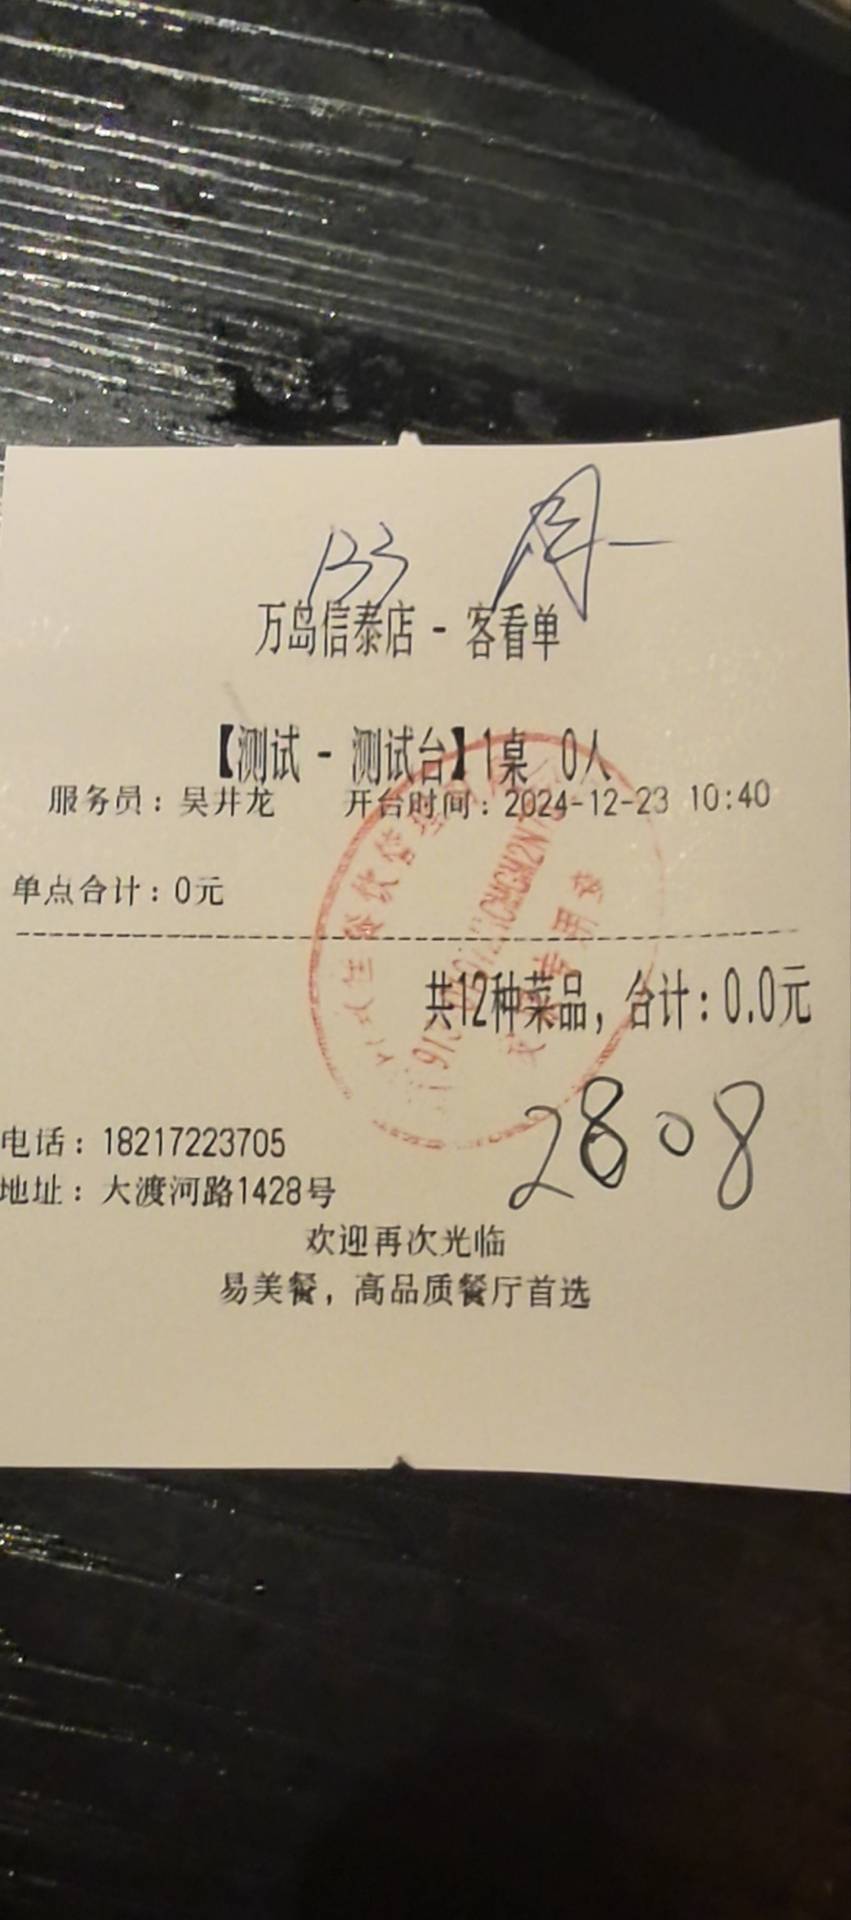 133
万岛信泰店 - 客看单
【测试 - 测试台】1桌 0人
服务员：吴井龙 开台时间：2024-12-23 10:40
单点合计：0元
共12种菜品，合计：0.0元
2808
电话：18217223705
地址：大渡河路1428号
欢迎再次光临
易美餐，高品质餐厅首选